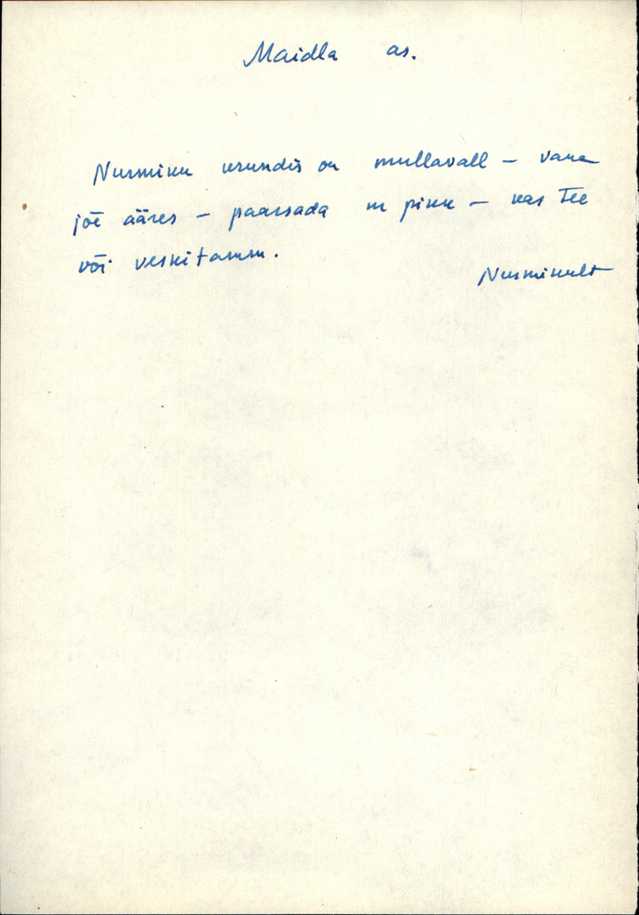 Maidla as.
Nurmiku krundis on mullavall – vana
jõe ääres – paarsada m pikk – kas tee
või veskitamm.
Nurmikult